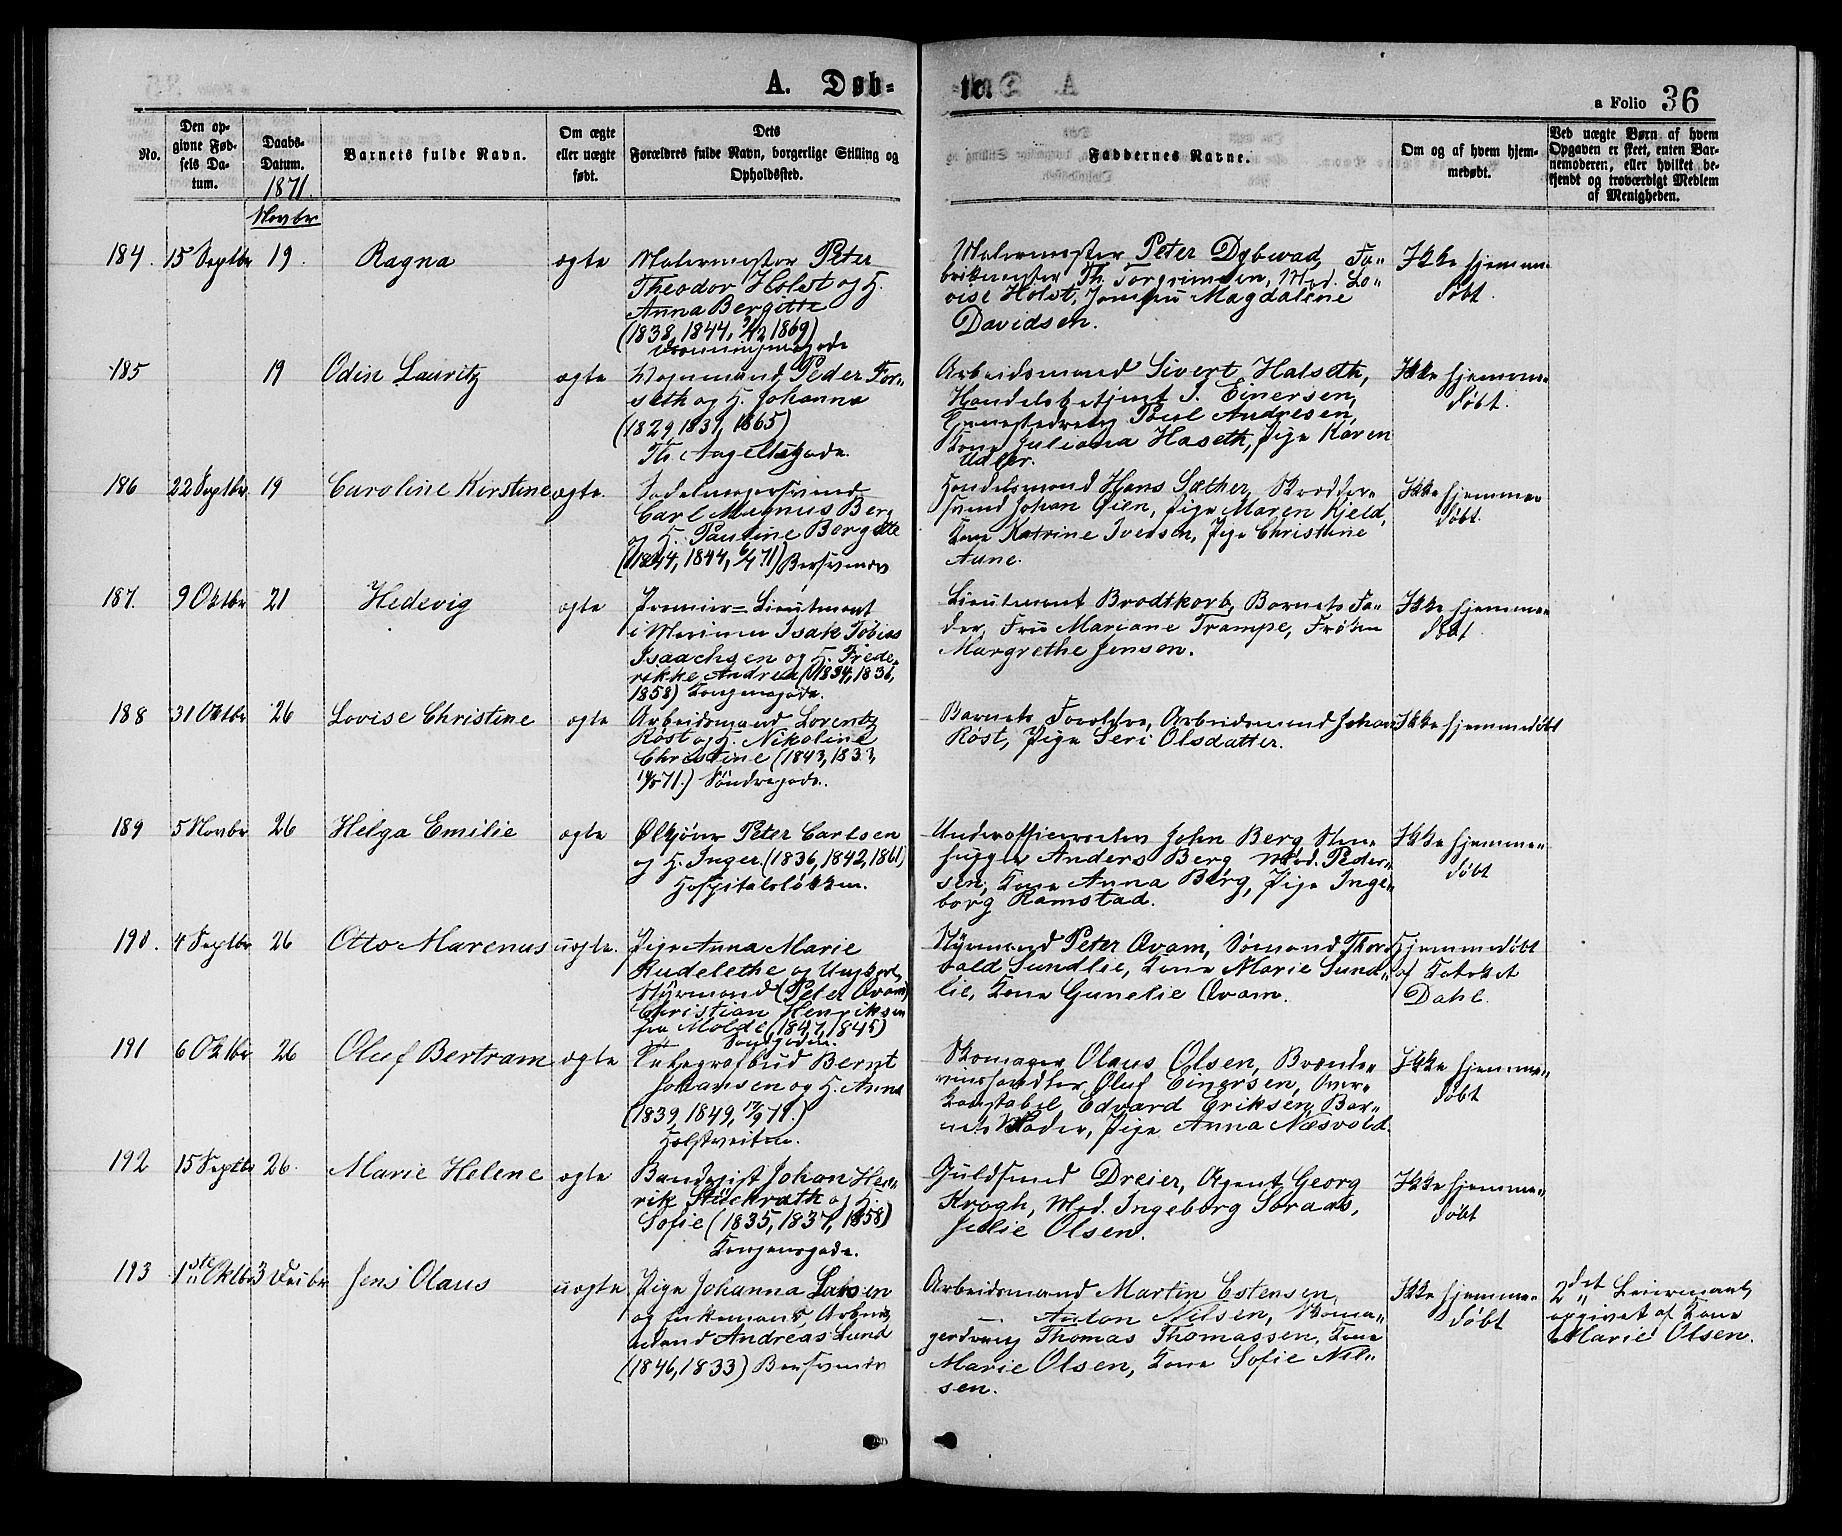 A. Døb-
te.
a Folio 36
No.
Den op-
givne Fød-
sels Da-
tum.
Daabs-
Datum.
1871.
Novbr
Barnets fulde Navn.
Om ægte
eller uægte
født.
Dets
Forældres fulde Navn, borgerlige Stilling og
Opholdssted.
Faddernes Navne.
Om og af hvem hjem-
medøbt.
Ved uægte Børn af hvem
Opgaven er skeet, enten Bar-
nemoderen, eller hvilket be-
kjendt og troværdigt Medlem
af Menigheden.
184. 15 Septbr 19. Ragna ægte
Malermester Peter
Theodor Holst og H.
Anna Bergitte
(1838, 1844, 1869)
Malermester Peter Dybwad, Fa-
brikmester Th. Torgrimsen, Mad. Lo-
vise Holst, Jomfru Magdalene
Davidsen.
Ikke hjemme-
døbt.
185 19 Odin Lauritz ægte
Vognmand Peder For-
seth og H. Johanna
(1829, 1831, 1865)
Th. Angellsgade.
Arbeidsmand Sivert Halseth,
Handelsbetjent J. Einersen,
Paul Andresen,
Kone Juliana Haseth, Pige Karen
Udler.
Ikke hjemme-
døbt.
186 22 Septbr 19 Caroline Kirstine ægte.
Sadelmagersvend
Carl Magnus Berg
og H. Pauline Bergitte
(1844, 1844, 71) Bersvendv
Handelsmand Hans Sæther, Skrædder-
svend Johan Øien, Pige Maren Kjeld,
Kone Katrine Iversen, Pige Christine
Aune.
Ikke hjemme-
døbt.
187. 9 Oktbr 21 Hedevig ægte
Premier-Lieutenant
i Marinen Isak Tobias
Isaachsen og H. Frede-
rikke Andrea (1834, 1836,
1858) Kongensgade.
Lieutenant Brodtkorb, Barnets Fa-
der, Fru Mariane Trampe, Frøken
Margrethe Jensen.
Ikke hjemme-
døbt.
188 31 Oktbr 26 Lovise Christine ægte
Arbeidsmand Lorentz
Røst og H. Nikoline
Christine (1843, 1833,
71.) Søndregade.
Barnets Forældre, Arbeidsmand Johan
Røst, Pige Seri Olsdatter.
Ikke hjemmedøbt
189 5 Novbr 26 Helga Emilie ægte
Ølkjører Peter Carlsen
og H. Inger (1836, 1842, 1861)
Hospitalsløkken.
John Berg, Sten-
hugger Anders Berg, Mad. Peder-
sen, Kone Anna Berg, Pige Inge-
borg Ramstad.
Ikke hjemme-
døbt
190. 4 Septbr 26 Otto Marenus uægte.
Pige Anna Marie
Rudelethe og Ungkarl,
Styrmand (Peter Qvam)
Christian Henriksen
fra Molde (1847, 1845)
Styrmand Peter Qvam, Sømand Thor-
vald Sundlie, Kone Marie Sund-
lie, Kone Gunelie Qvam.
Hjemmedøbt
af Kateket
Dahl.
191 6 Oktbr 26 Oluf Bertram ægte
Telegrafbud Bernt
Johansen og H. Anna
(1839, 1849, 71.)
Holstveiten.
Skomager Olaus Olsen, Brænde-
vinshandler Oluf Einersen, Over-
konstabel Edvard Eriksen, Bar-
nets Moder, Pige Anna Næsvold.
Ikke hjemme-
døbt
192 15 Septbr 26. Marie Helene ægte
Bandagist Johan Hen-
rik Stückrath og H.
Sofie (1835, 1837, 1858)
Kongensgade.
Guldsmed Dreier, Agent Georg
Krogh, Mad. Ingeborg Soraas,
Julie Olsen.
Ikke hjemme-
døbt
193 1ste Oktbr 3 Decbr Jens Olaus uægte
Pige Johanna Larsen
og Enkemand, Arbeids-
mand Andreas Lund
(1846, 1833) Bersvendv
Arbeidsmand Martin Estensen,
— Anton Nilsen, Skoma-
gerdreng Thomas Thomassen, Kone
Marie Olsen, Kone Sofie Nil-
sen.
Ikke hjemme-
døbt
2det Leiermaal,
opgivet af Kone
Marie Olsen.